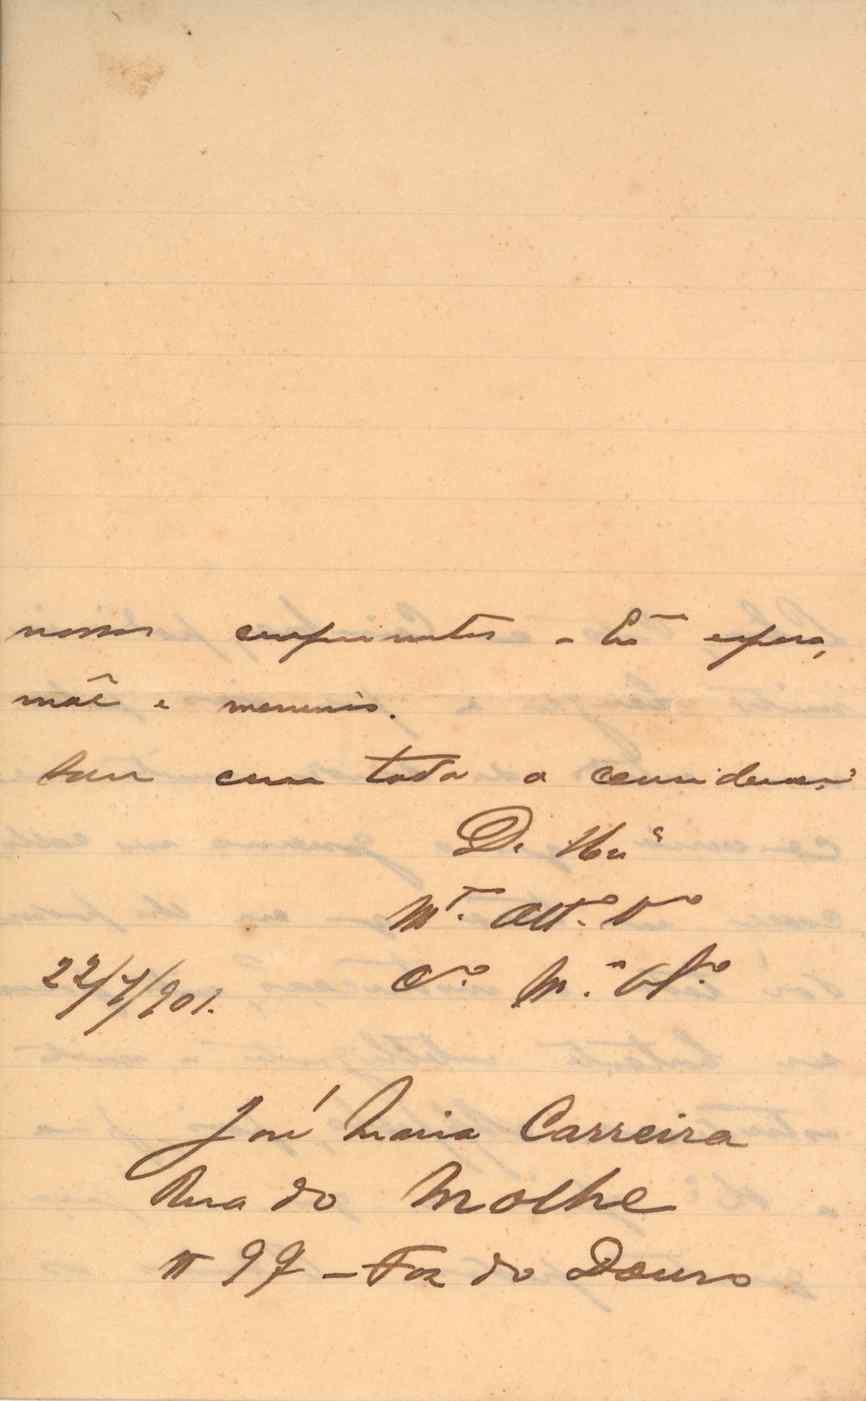 nossos cumprimentos a Exª esposa,
mãe e meninos.
Sou com toda a consideração
De V. Exª
Mᵗᵒ. Attº. Vºʳ
Cº. Mº. Obº
22/7/901.
José Maria Carreira
Rua do Molhe
nº 97 - Foz do Douro